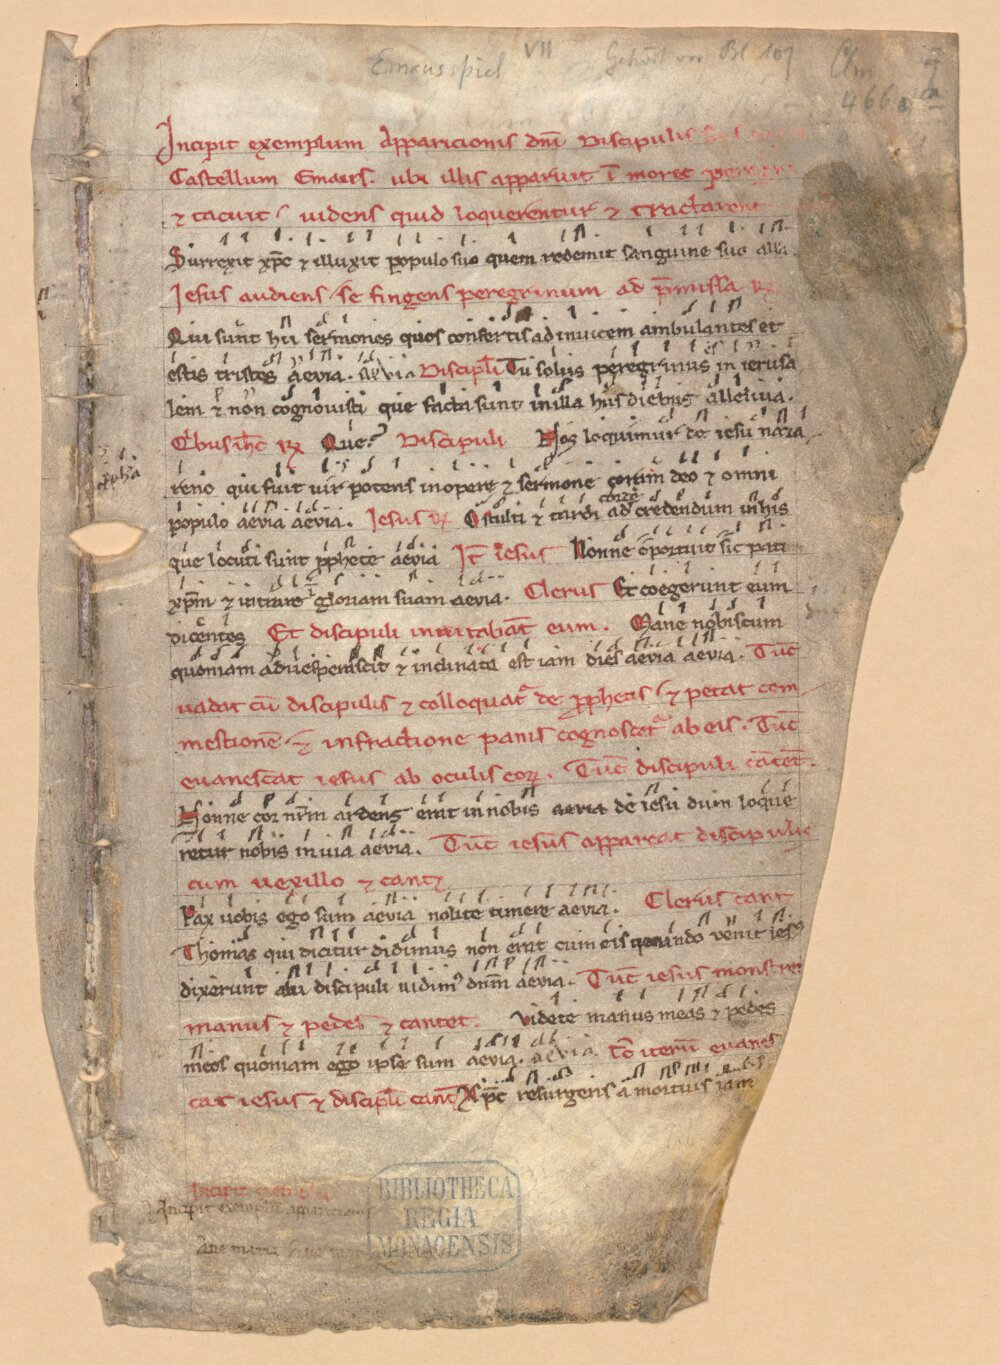 Emausspiel VII Gehört vor Bl 107 Clm
466a
Incipit exemplum Apparicionis dnī Discipulis
Castellum Emaus. ubi illis apparuit ī more
⁊ tacuit videns quid loquerentur ⁊ tractarent
Surrexit xp̄c ⁊ illuxit populo suo quem redemit sanguine suo alla.
Jesus audiens se fingens peregrinum ad p̄missa ℞
Qui sunt hii sermones quos confertis ad invicem ambulantes et
estis tristes aevia. aevia Discipl̄i Tu solus peregrinus in ierusa
lem ⁊ non cognovisti que facta sunt in illa his diebus alleluia.
Qibus ih̄c ℞ Que? Discipuli Nos loquimur de iesu naza
reno qui fuit vir potens in opere ⁊ sermone coram deo ⁊ omni
ppha
corde
populo aevia aevia. Jesus ℞ O stulti ⁊ tardi ad credendum in his
que locuti sunt pphete aevia It̄ iesus Nonne oportuit sic pati
xp̄m ⁊ intrare ī gloriam suam aevia. Clerus Et coegerunt eum
dicentes Et discipuli invitabāt eum. Mane nobiscum
quoniam advesperascit ⁊ inclinata est iam dies aevia aevia. Tūc
vadat cū discipulis ⁊ colloquat de pphetis ⁊ petat com
mestionē ⁊ infractione panis cognoscet ab eis. Tūc
evanescat iesus ab oculis eoꝝ. Tūc discipuli cātent.
Nonne cor nr̄m ardens erat in nobis aevia de iesu dum loque
retur nobis in via aevia. Tūc iesus appareat discipulis
cum vexillo ⁊ cantet
Pax vobis ego sum aevia nolite timere aevia. Clerus cant
Thomas qui dicitur didimus non erat cum eis quando venit iesus
dixerunt alii discipuli vidim⁹ dn̄m aevia. Tūc iesus monstret
manus ⁊ pedes ⁊ cantet. Videte manus meas ⁊ pedes
meos quoniam ego ipse sum aevia. aevia. iterū evanes
cat iesus ⁊ discipl̄i cant̄ Xp̄c resurgens a mortuis iam
Incipit exemplū
Incipit exemplū apparicionis
Ave maria
BIBLIOTHECA
REGIA
MONACENSIS